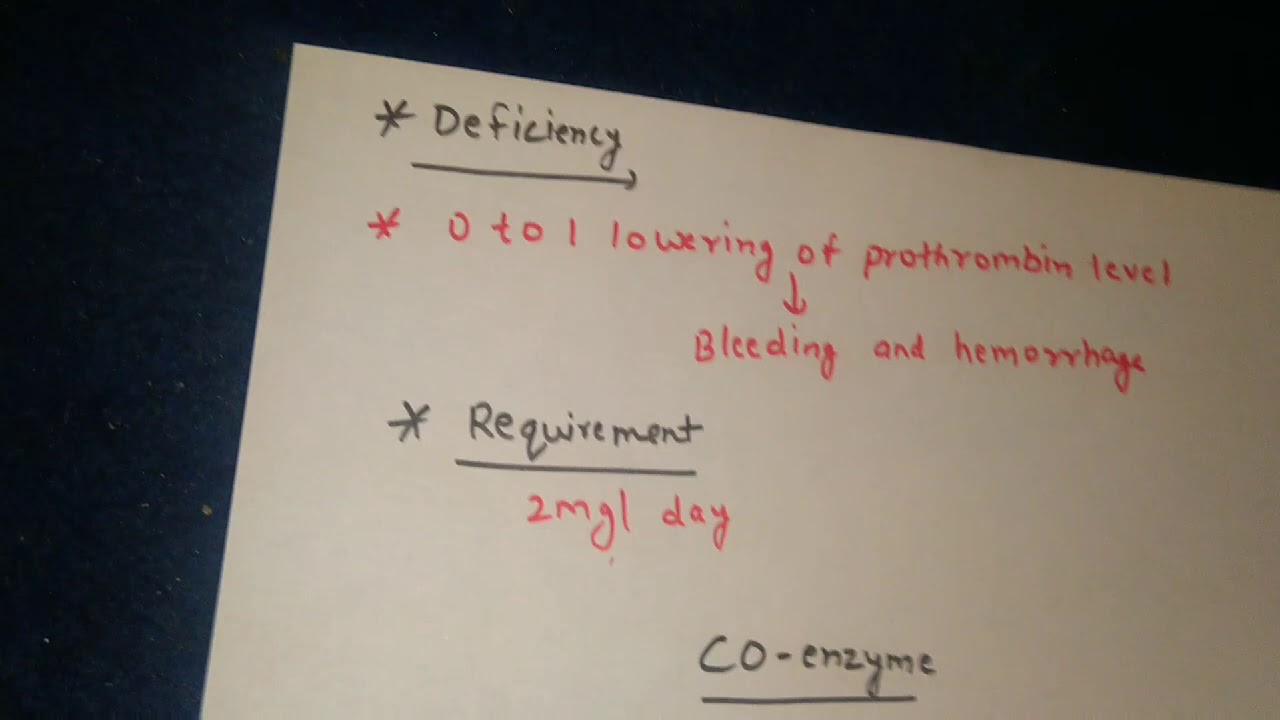 * Deficiency
* 0 to 1 lowering of prothrombin level
↓
Bleeding and hemorrhage
* Requirement
2mg| day
CO-enzyme